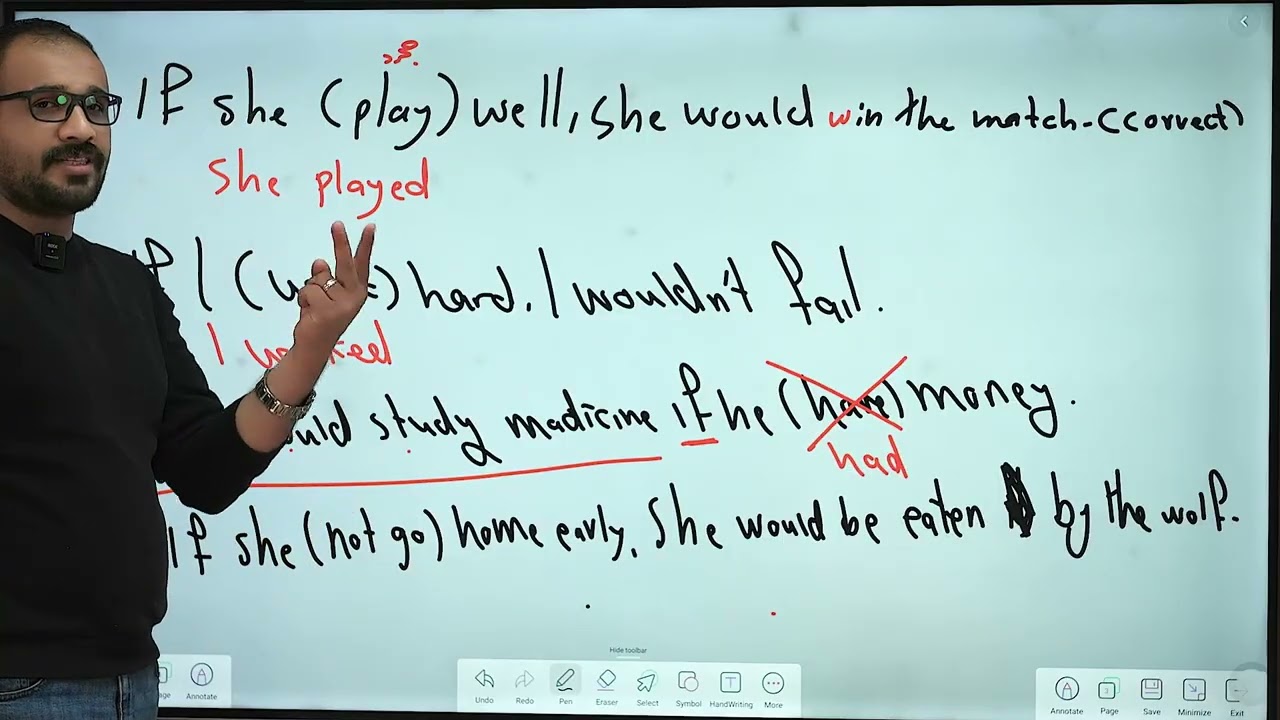 If she (play) well, she would win the match. (correct)
She played
If I ( ) hard. I wouldn't fail.
I
study madicine if he (have) money.
had
If she (not go) home early, She would be eaten by the wolf.
Hide toolbar
Annotate Undo Redo Pen Eraser Select Symbol HandWriting More Annotate Page Save Minimize Exit